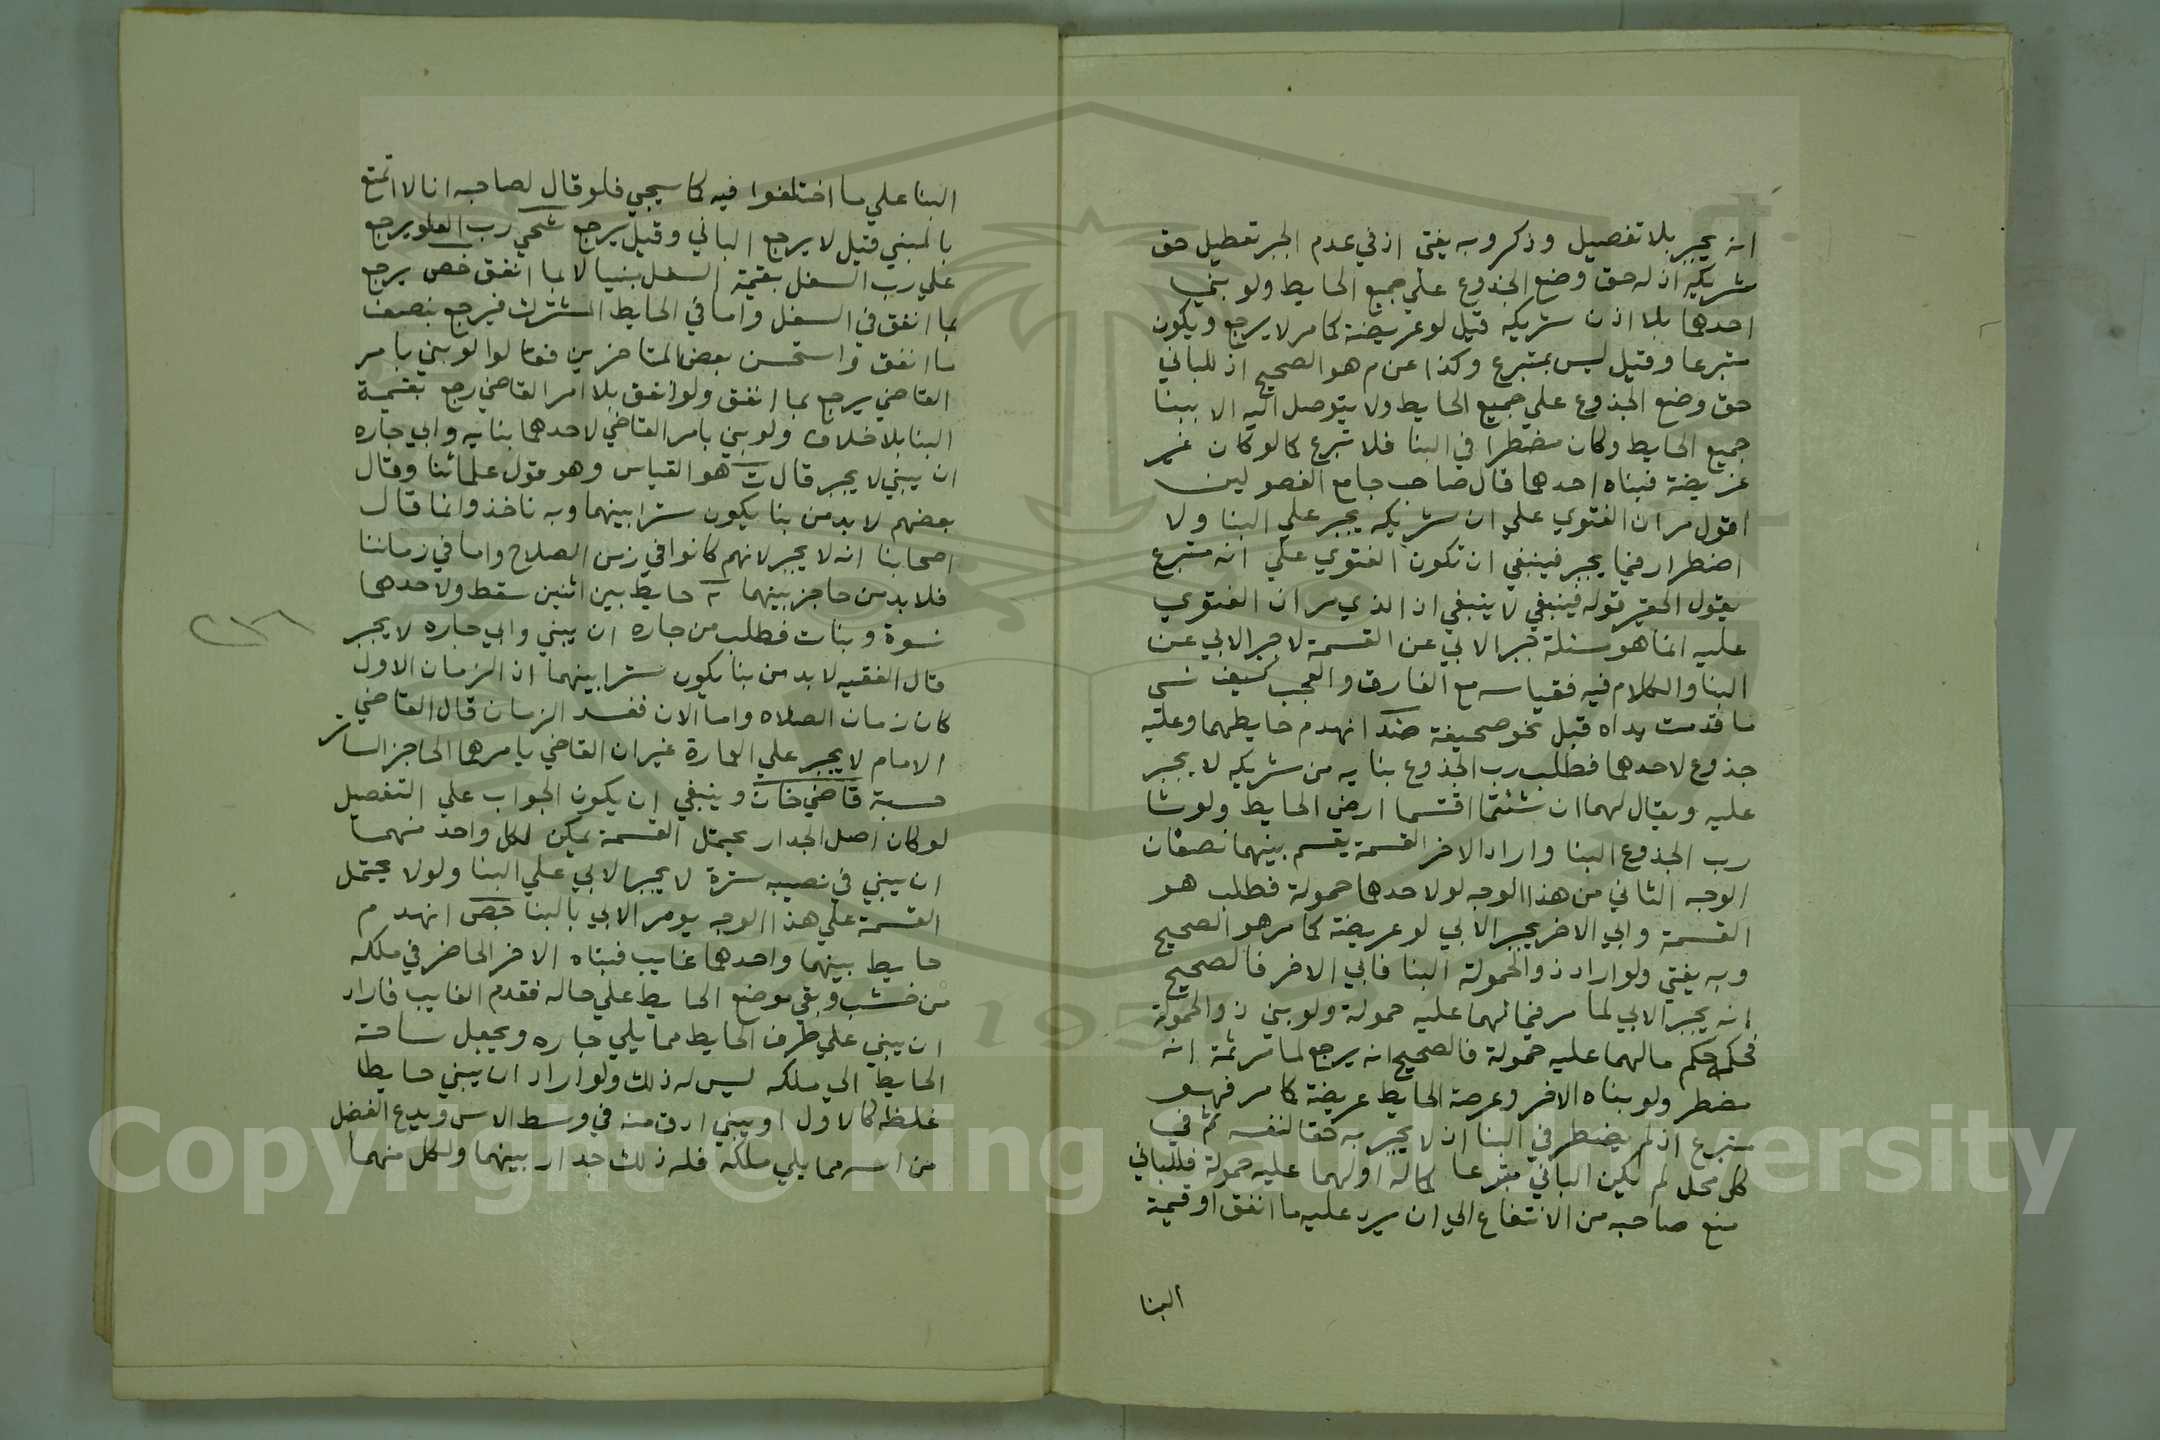 انه يجبر بلا تفصيل وذكر وبه يفتي اذ في عدم الجبر تعطيل حق
شريكه اذ له حق وضع الجذوع علي جميع الحايط ولو بني
احدهما بلا اذن شريكه قيل لو عريضة كما مر لا يرجع ويكون
متبرعا وقيل ليس بمتبرع وكذا عن م هو الصحيح اذ للباني
حق وضع الجذوع علي جميع الحايط ولا يتوصل اليه الا ببنا
جميع الحايط وكان مضطرا في البنا فلا تبرع كما لو كان غير
عريضة فبناه احدهما قال صاحب جامع الفصولين
اقول مر ان الفتوي علي ان شريكه يجبر علي البنا ولا
اضطرار فيما يجبر فينبغي ان تكون الفتوي علي انه متبرع
يقول الحقير قوله فينبغي لا ينبغي اذ الذي مر ان الفتوي
عليه انما هو مسئلة جبر الابي عن القسمة لا جبر الابي عن
البنا والكلام فيه فقياسه مع الفارق والعجب كيف نسي
ما قدمت يداه قبل نحو صحيفة انهدم حايطهما وعليه
جذوع لاحدهما فطلب رب الجذوع بنايه من شريكه لا يجبر
عليه ويقال لهما ان شئتما اقتسما ارض الحايط ولو شا
رب الجذوع البنا واراد الاخر القسمة يقسم بينهما نصفان
الوجه الثاني من هذا الوجه لو لاحدهما حمولة فطلب هو
القسمة وابي الاخر يجبر الابي لو عريضة كما مر هو الصحيح
وبه يفتي ولو اراد ذو الحمولة البنا فابي الاخر فالصحيح
انه يجبر الابي لما مر فيما لهما عليه حمولة ولو بني ذو الحمولة
فحكمه حكم ما لهما عليه حمولة فالصحيح انه يرجع لما مر ثمة انه
مضطر ولو بناه الاخر وعرصة الحايط عريضة كما مر فهو
متبرع اذ لم يضطر في البنا اذ لا يجبر به حقا لنفسه ثم في
كل محل لم يكن الباني متبرعا كما له او لهما عليه حمولة فللباني
منع صاحبه من الانتفاع الي ان يرد عليه ما انفق او قيمة
البنا
البنا علي ما اختلفوا فيه كما سيجي فلو قال لصاحبه انا لا اتمتع
بالمبني قيل لا يرجع الباني وقيل يرجع شحي رب العلو يرجع
علي رب السفل بقيمة السفل بنيا لا بما انفق خص يرجع
بما انفق في السفل واما في الحايط المشترك فيرجع بنصف
ما انفق واستحسن بعض المتاخرين فقالوا لو بني بامر
القاضي يرجع بما انفق ولو انفق بلا امر القاضي رجع بقيمة
البنا بلا خلاف ولو بني بامر القاضي لاحدهما بنايه وابي جاره
ان يبني لا يجبر قال ث هو القياس وهو قول علمائنا وقال
بعضهم لا بد من بنا يكون سترا بينهما وبه ناخذ وانما قال
اصحابنا انه لا يجبر لانهم كانوا في زمن الصلاح واما في زماننا
فلا بد من حاجز بينهما حايط بين اثنين سقط ولاحدهما
نسوة وبنات فطلب من جاره ان يبني وابي جاره لا يجبر
قال الفقيه لا بد من بنا يكون سترا بينهما اذ الزمان الاول
كان زمان الصلاه واما الان ففسد الزمان قال القاضي
الامام لا يجبر علي العمارة غير ان القاضي يامرهما الحاجز الساتر
حسبة قاضي خان وينبغي ان يكون الجواب علي التفصيل
لو كان اصل الجدار يحتمل القسمة يمكن لكل واحد منهما
ان يبني في نصيبه سترة لا يجبر الابي علي البنا ولو لا يحتمل
القسمة علي هذا الوجه يومر الابي بالبنا خص انهدم
حايط بينهما واحدهما غايب فبناه الاخر الحاضر في ملكه
من خشب وبقي موضع الحايط علي حاله فقدم الغايب فاراد
ان يبني علي طرف الحايط مما يلي جاره ويجعل ساحة
الحايط الي ملكه ليس له ذلك ولو اراد ان يبني حايطا
غلظه كالاول او يبني ادق منه في وسط الاس ويدع الفضل
من اسه مما يلي ملكه فله ذلك جدار بينهما ولكل منهما
Copyright © King Saud University
195